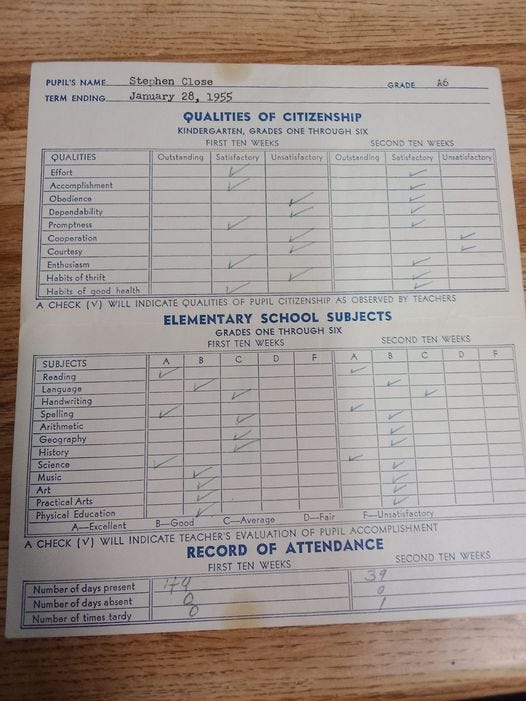 PUPIL'S NAME Stephen Close GRADE A6
TERM ENDING January 28, 1955
QUALITIES OF CITIZENSHIP
KINDERGARTEN, GRADES ONE THROUGH SIX
FIRST TEN WEEKS SECOND TEN WEEKS
QUALITIES Outstanding Satisfactory Unsatisfactory Outstanding Satisfactory Unsatisfactory
Effort ✓ ✓
Accomplishment ✓ ✓
Obedience ✓ ✓
Dependability ✓ ✓
Promptness ✓ ✓
Cooperation ✓ ✓
Courtesy ✓ ✓
Enthusiasm ✓ ✓
Habits of thrift ✓ ✓
Habits of good health ✓ ✓
A CHECK (√) WILL INDICATE QUALITIES OF PUPIL CITIZENSHIP AS OBSERVED BY TEACHERS
ELEMENTARY SCHOOL SUBJECTS
GRADES ONE THROUGH SIX
FIRST TEN WEEKS SECOND TEN WEEKS
SUBJECTS A B C D F A B C D F
Reading ✓ ✓
Language ✓ ✓
Handwriting ✓ ✓
Spelling ✓ ✓
Arithmetic ✓ ✓
Geography ✓ ✓
History ✓ ✓
Science ✓ ✓
Music ✓ ✓
Art ✓ ✓
Practical Arts ✓ ✓
Physical Education ✓ ✓
A—Excellent B—Good C—Average D—Fair F—Unsatisfactory
A CHECK (√) WILL INDICATE TEACHER'S EVALUATION OF PUPIL ACCOMPLISHMENT
RECORD OF ATTENDANCE
FIRST TEN WEEKS SECOND TEN WEEKS
Number of days present 39
Number of days absent 0 0
Number of times tardy 0 1